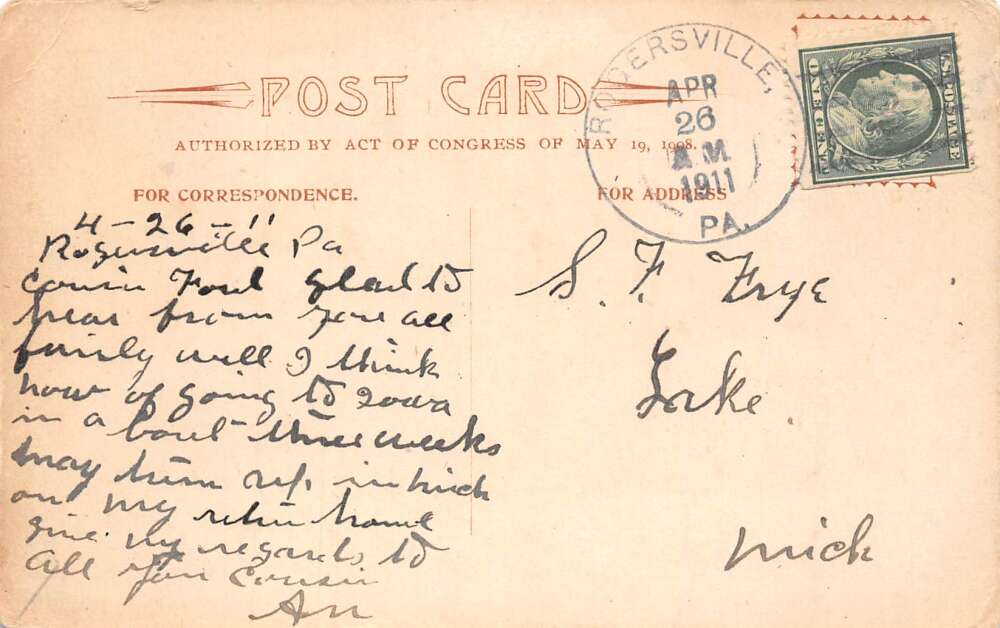 POST CARD
AUTHORIZED BY ACT OF CONGRESS OF MAY 19, 1908.
FOR CORRESPONDENCE.
FOR ADDRESS
ROGERSVILLE,
APR
26
A.M.
1911
PA.
U.S. POSTAGE
ONE CENT
4-26-11
Rogersville Pa
Cousin Glad to
hear from you all
fairly well I think
now of going to Iowa
in a bout three weeks
may turn up in Mich
on my retur home
give my regards to
all your Cousin
S. F. Frye
Lake
Mich